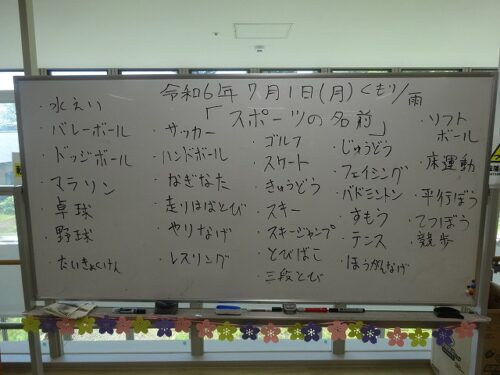 令和6年 7月1日(月)くもり/雨
「スポーツの名前」
・水えい
・バレーボール
・ドッジボール
・マラソン
・卓球
・野球
・たいきょくけん
・サッカー
・ハンドボール
・なぎなた
・走りはばとび
・やりなげ
・レスリング
・ゴルフ
・スケート
・きゅうどう
・スキー
・スキージャンプ
・とびばこ
・三段とび
・じゅうどう
・フェイシング
・バドミントン
・すもう
・テニス
・ほうがんなげ
・ソフト
ボール
・床運動
・平行ぼう
・てつぼう
・競歩